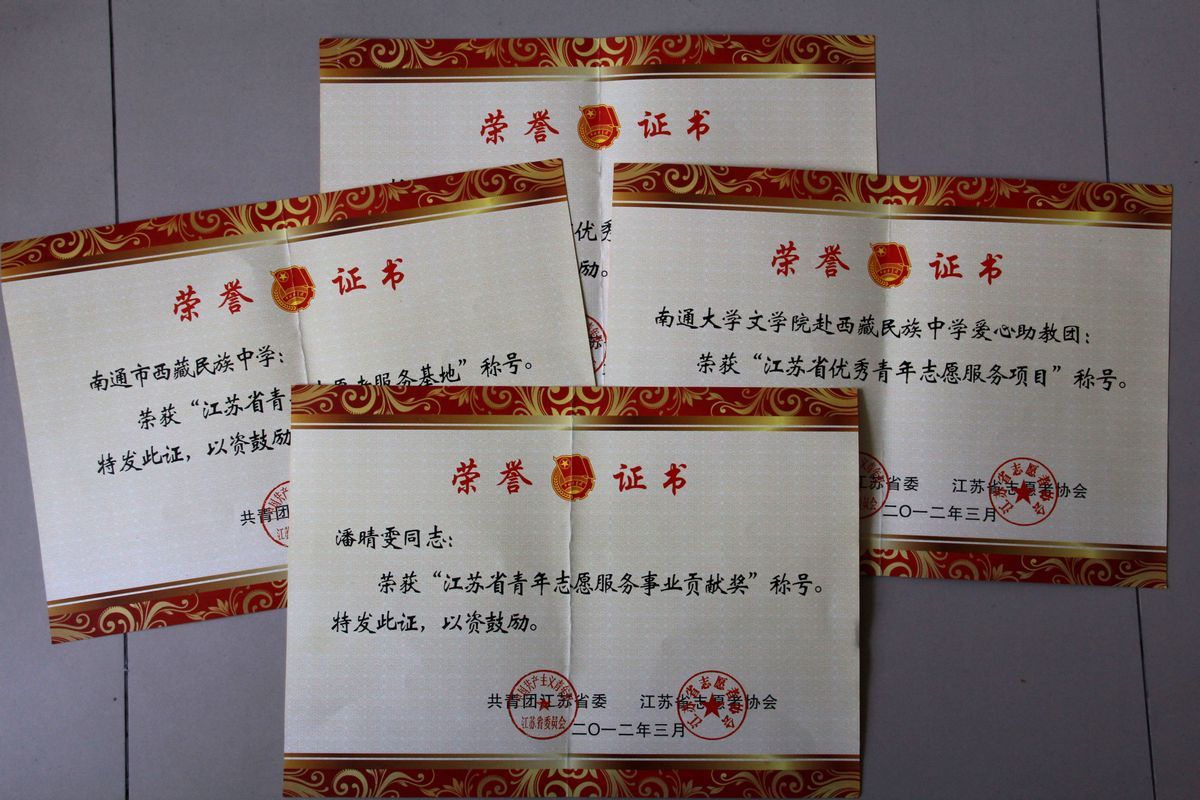 荣誉证书
优秀
励。
荣誉证书
南通市西藏民族中学：
荣获“江苏省青
愿者服务基地”称号。
特发此证，以资鼓励
共青团
荣誉证书
南通大学文学院赴西藏民族中学爱心助教团：
荣获“江苏省优秀青年志愿服务项目”称号。
江苏省委 江苏省志愿者协会
二〇一二年三月
江苏省志愿者协会
荣誉证书
潘晴雯同志：
荣获“江苏省青年志愿服务事业贡献奖”称号。
特发此证，以资鼓励。
共青团江苏省委 江苏省志愿者协会
二〇一二年三月
中国共产主义青年团
江苏省委员会
江苏省志愿者协会